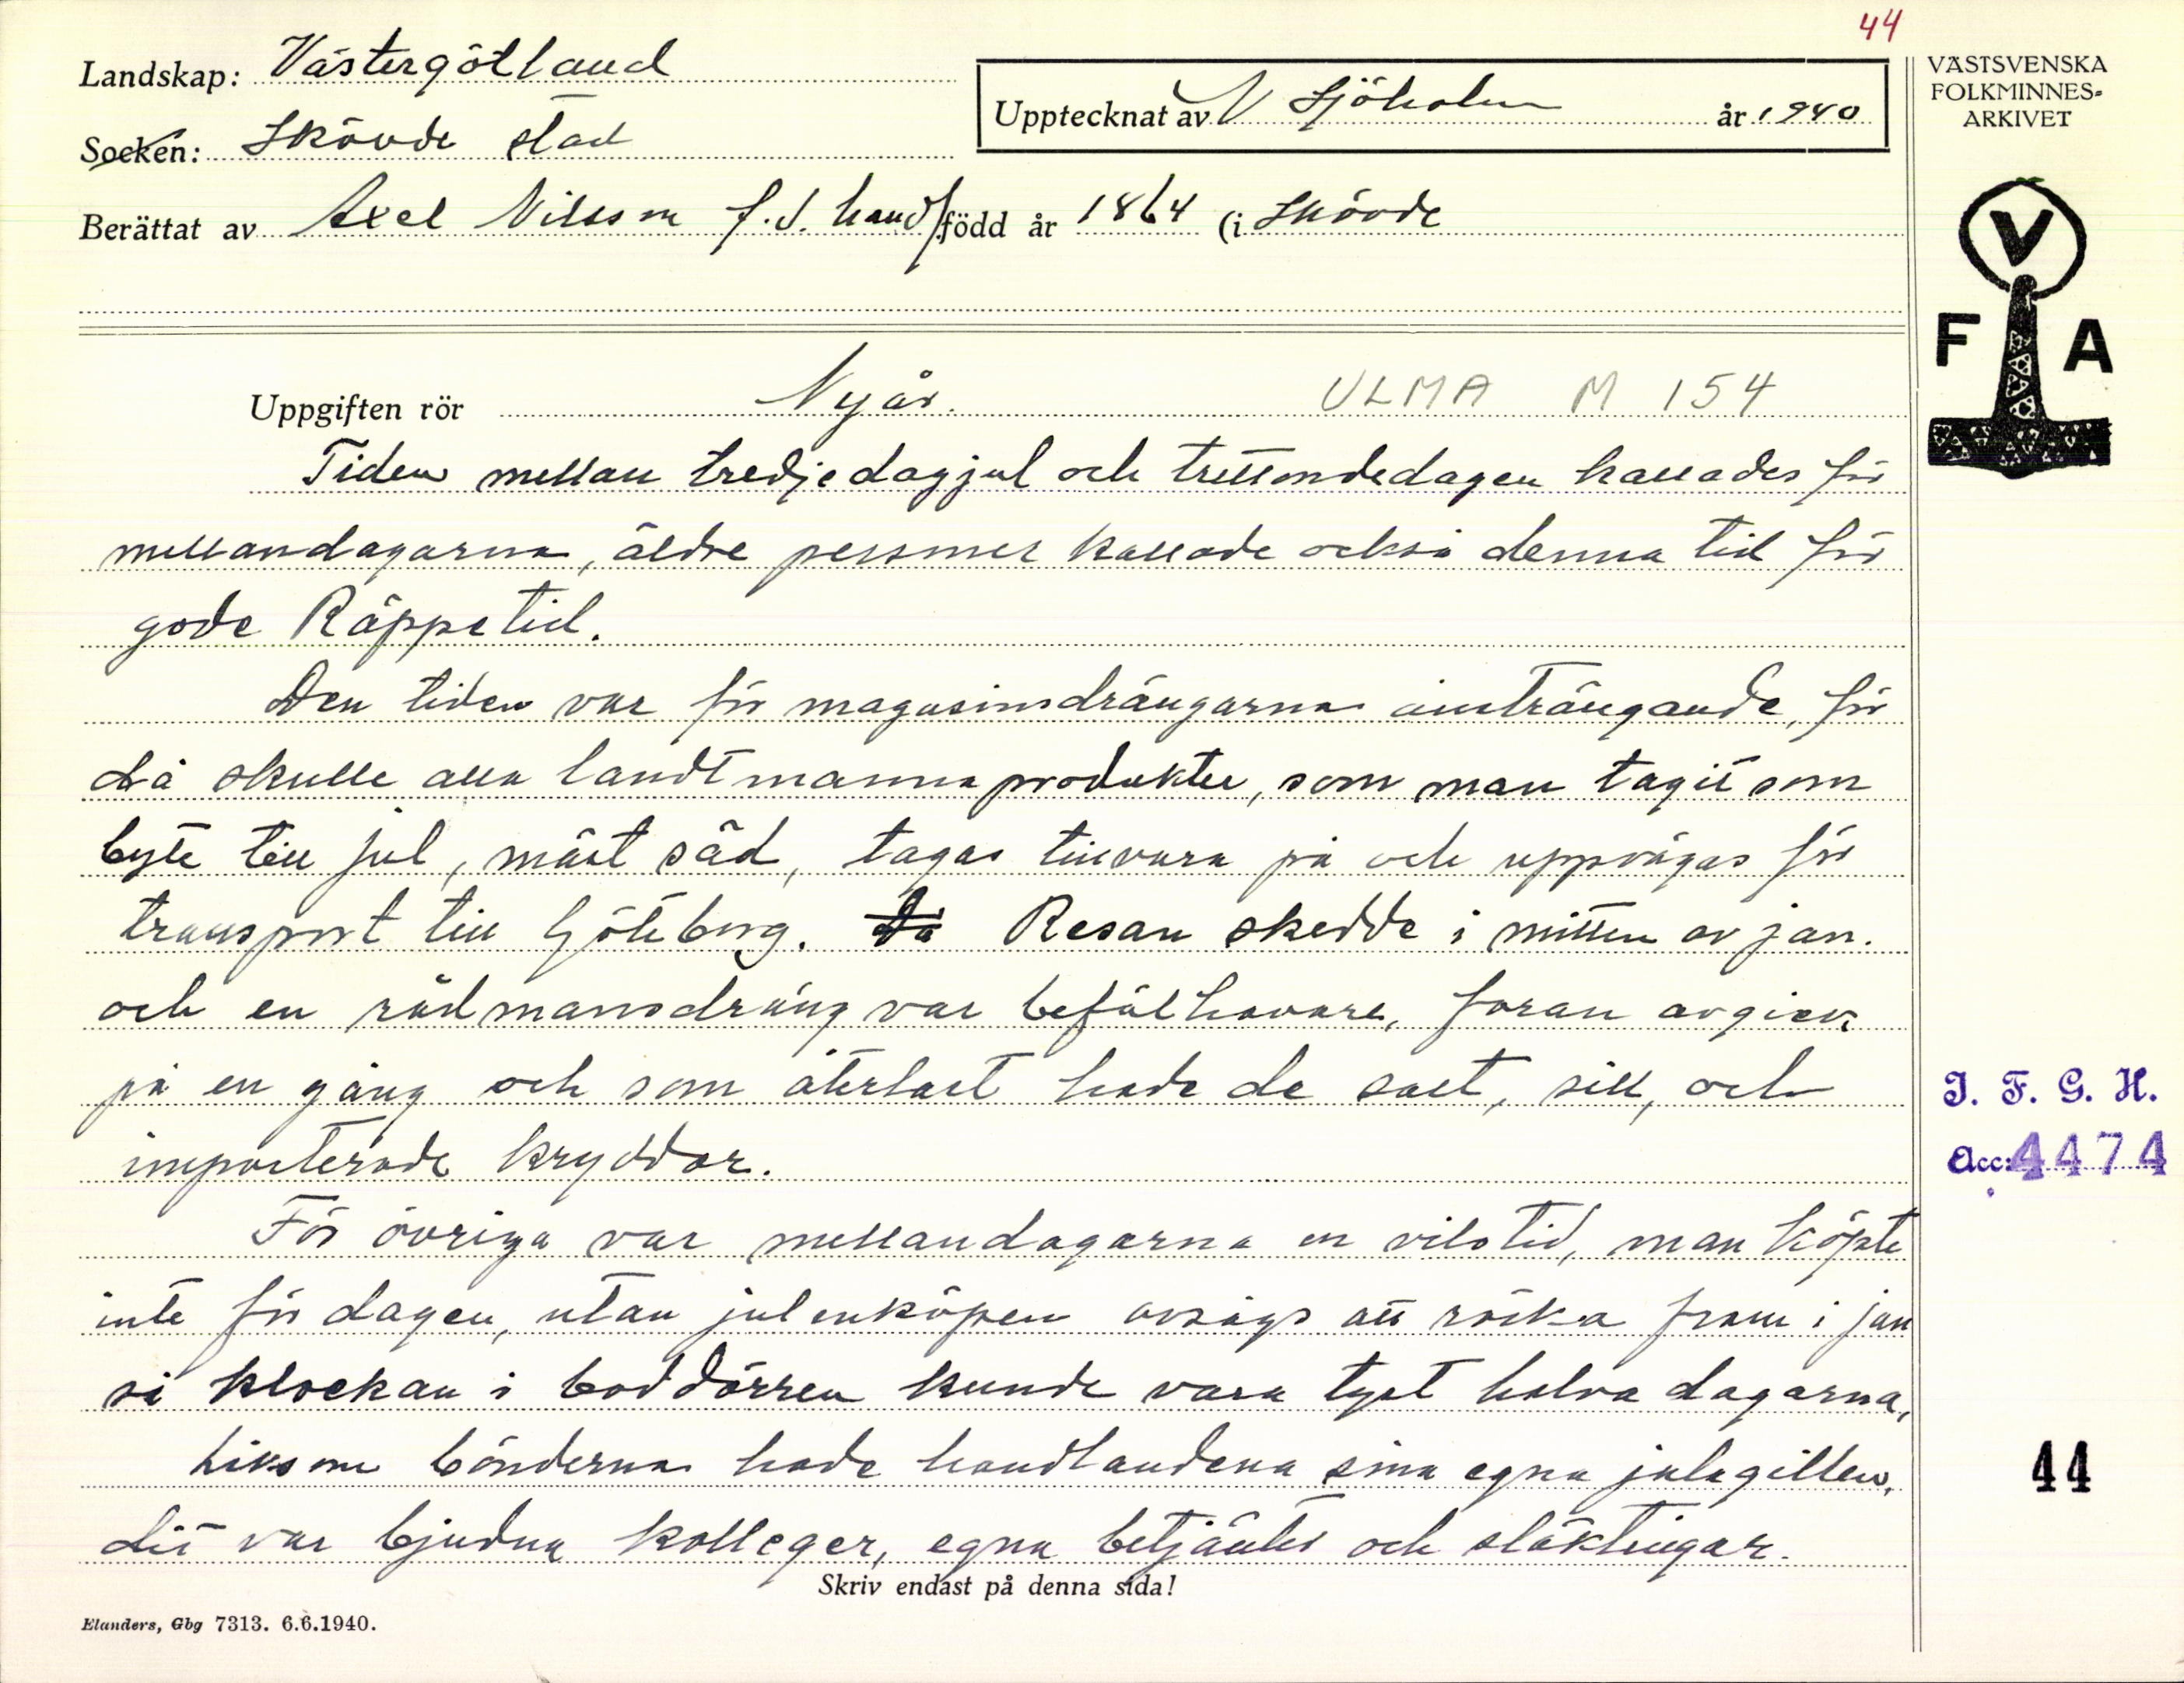 44
Landskap: Västergötland
Upptecknat av N Sjöholm år 1940
Socken: Skövde stad
Berättat av Axel Nilsson f.d. handl född år 1864 (i Skövde
VÄSTSVENSKA
FOLKMINNES=
ARKIVET
V
F A
Uppgiften rör Nyår. ULMA M 154
Tiden mellan tredjedagjul och trettondedagen kallades för
mellandagarna, äldre personer kallade också denna tid för
gode Räppetid.
Den tiden var för magasinsdrängarna ansträngande, för
då skulle alla landtmannaprodukter, som man tagit som
byte till jul, mäst säd, tagas tillvara på och uppvägas för
transport till Göteborg. Då Resan skedde i mitten av jan.
och en rådmansdräng var befälhavare, foran avgick
på en gång och som återlast hade de salt, sill, och
importerade kryddor.
För övriga var mellandagarna en vilotid, man köpte
inte för dagen, utan julinköpen avsågs att räcka fram i jan
så klockan i boddörren kunde vara tyst halva dagarna,
Liksom bönderna hade handlandena sina egna julagillen,
dit var bjudna kolleger, egna betjänter och släktingar.
I. F. G. H.
Acc: 4474
44
Skriv endast på denna sida!
Elanders, Gbg 7313. 6.6.1940.